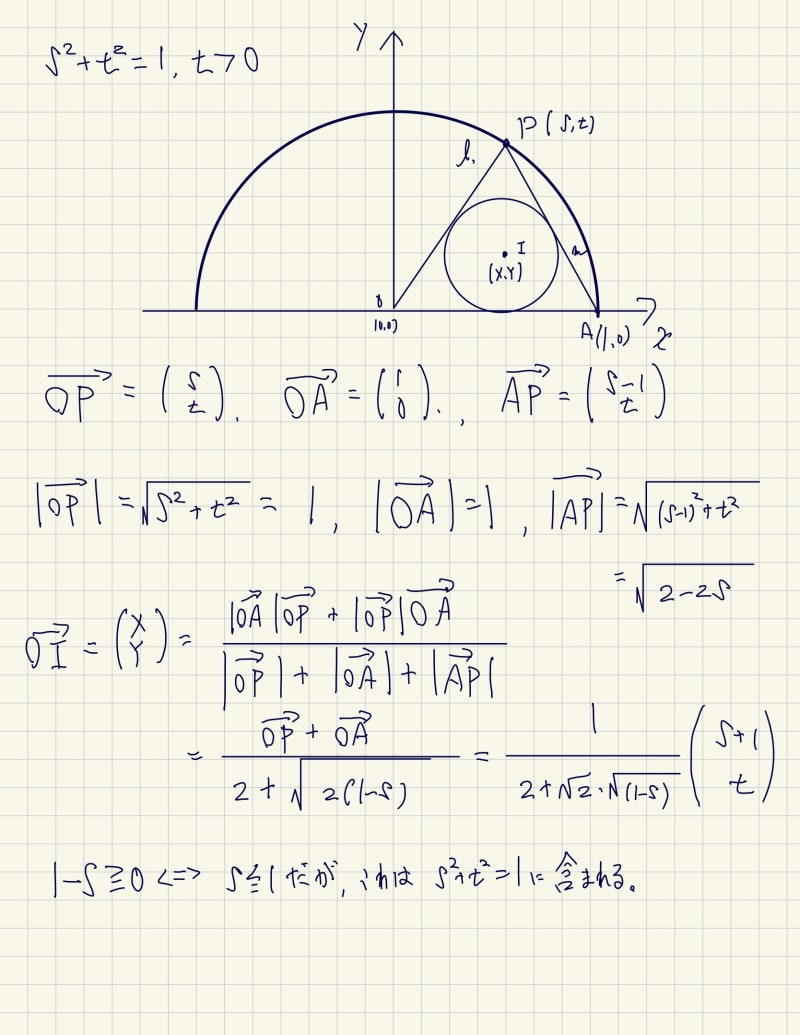 s²+t²=1, t>0
y
P(s,t)
l.
I
(X,Y)
m
0
(0,0)
A(1,0)
x
\overrightarrow{OP} = \begin{pmatrix} s \\ t \end{pmatrix}. \overrightarrow{OA} = \begin{pmatrix} 1 \\ 0 \end{pmatrix}., \overrightarrow{AP} = \begin{pmatrix} s-1 \\ t \end{pmatrix}
|\overrightarrow{OP}| = \sqrt{s²+t²} = 1, |\overrightarrow{OA}| = 1, |\overrightarrow{AP}| = \sqrt{(s-1)²+t²}
= \sqrt{2-2s}
\overrightarrow{OI} = \begin{pmatrix} X \\ Y \end{pmatrix} = \frac{|\overrightarrow{OA}|\overrightarrow{OP} + |\overrightarrow{OP}|\overrightarrow{OA}}{|\overrightarrow{OP}| + |\overrightarrow{OA}| + |\overrightarrow{AP}|}
= \frac{\overrightarrow{OP} + \overrightarrow{OA}}{2+\sqrt{2(1-s)}} = \frac{1}{2+\sqrt{2}·\sqrt{(1-s)}} \begin{pmatrix} s+1 \\ t \end{pmatrix}
1-s≧0 <=> s≦1だが, これは s²+t²=1に含まれる。